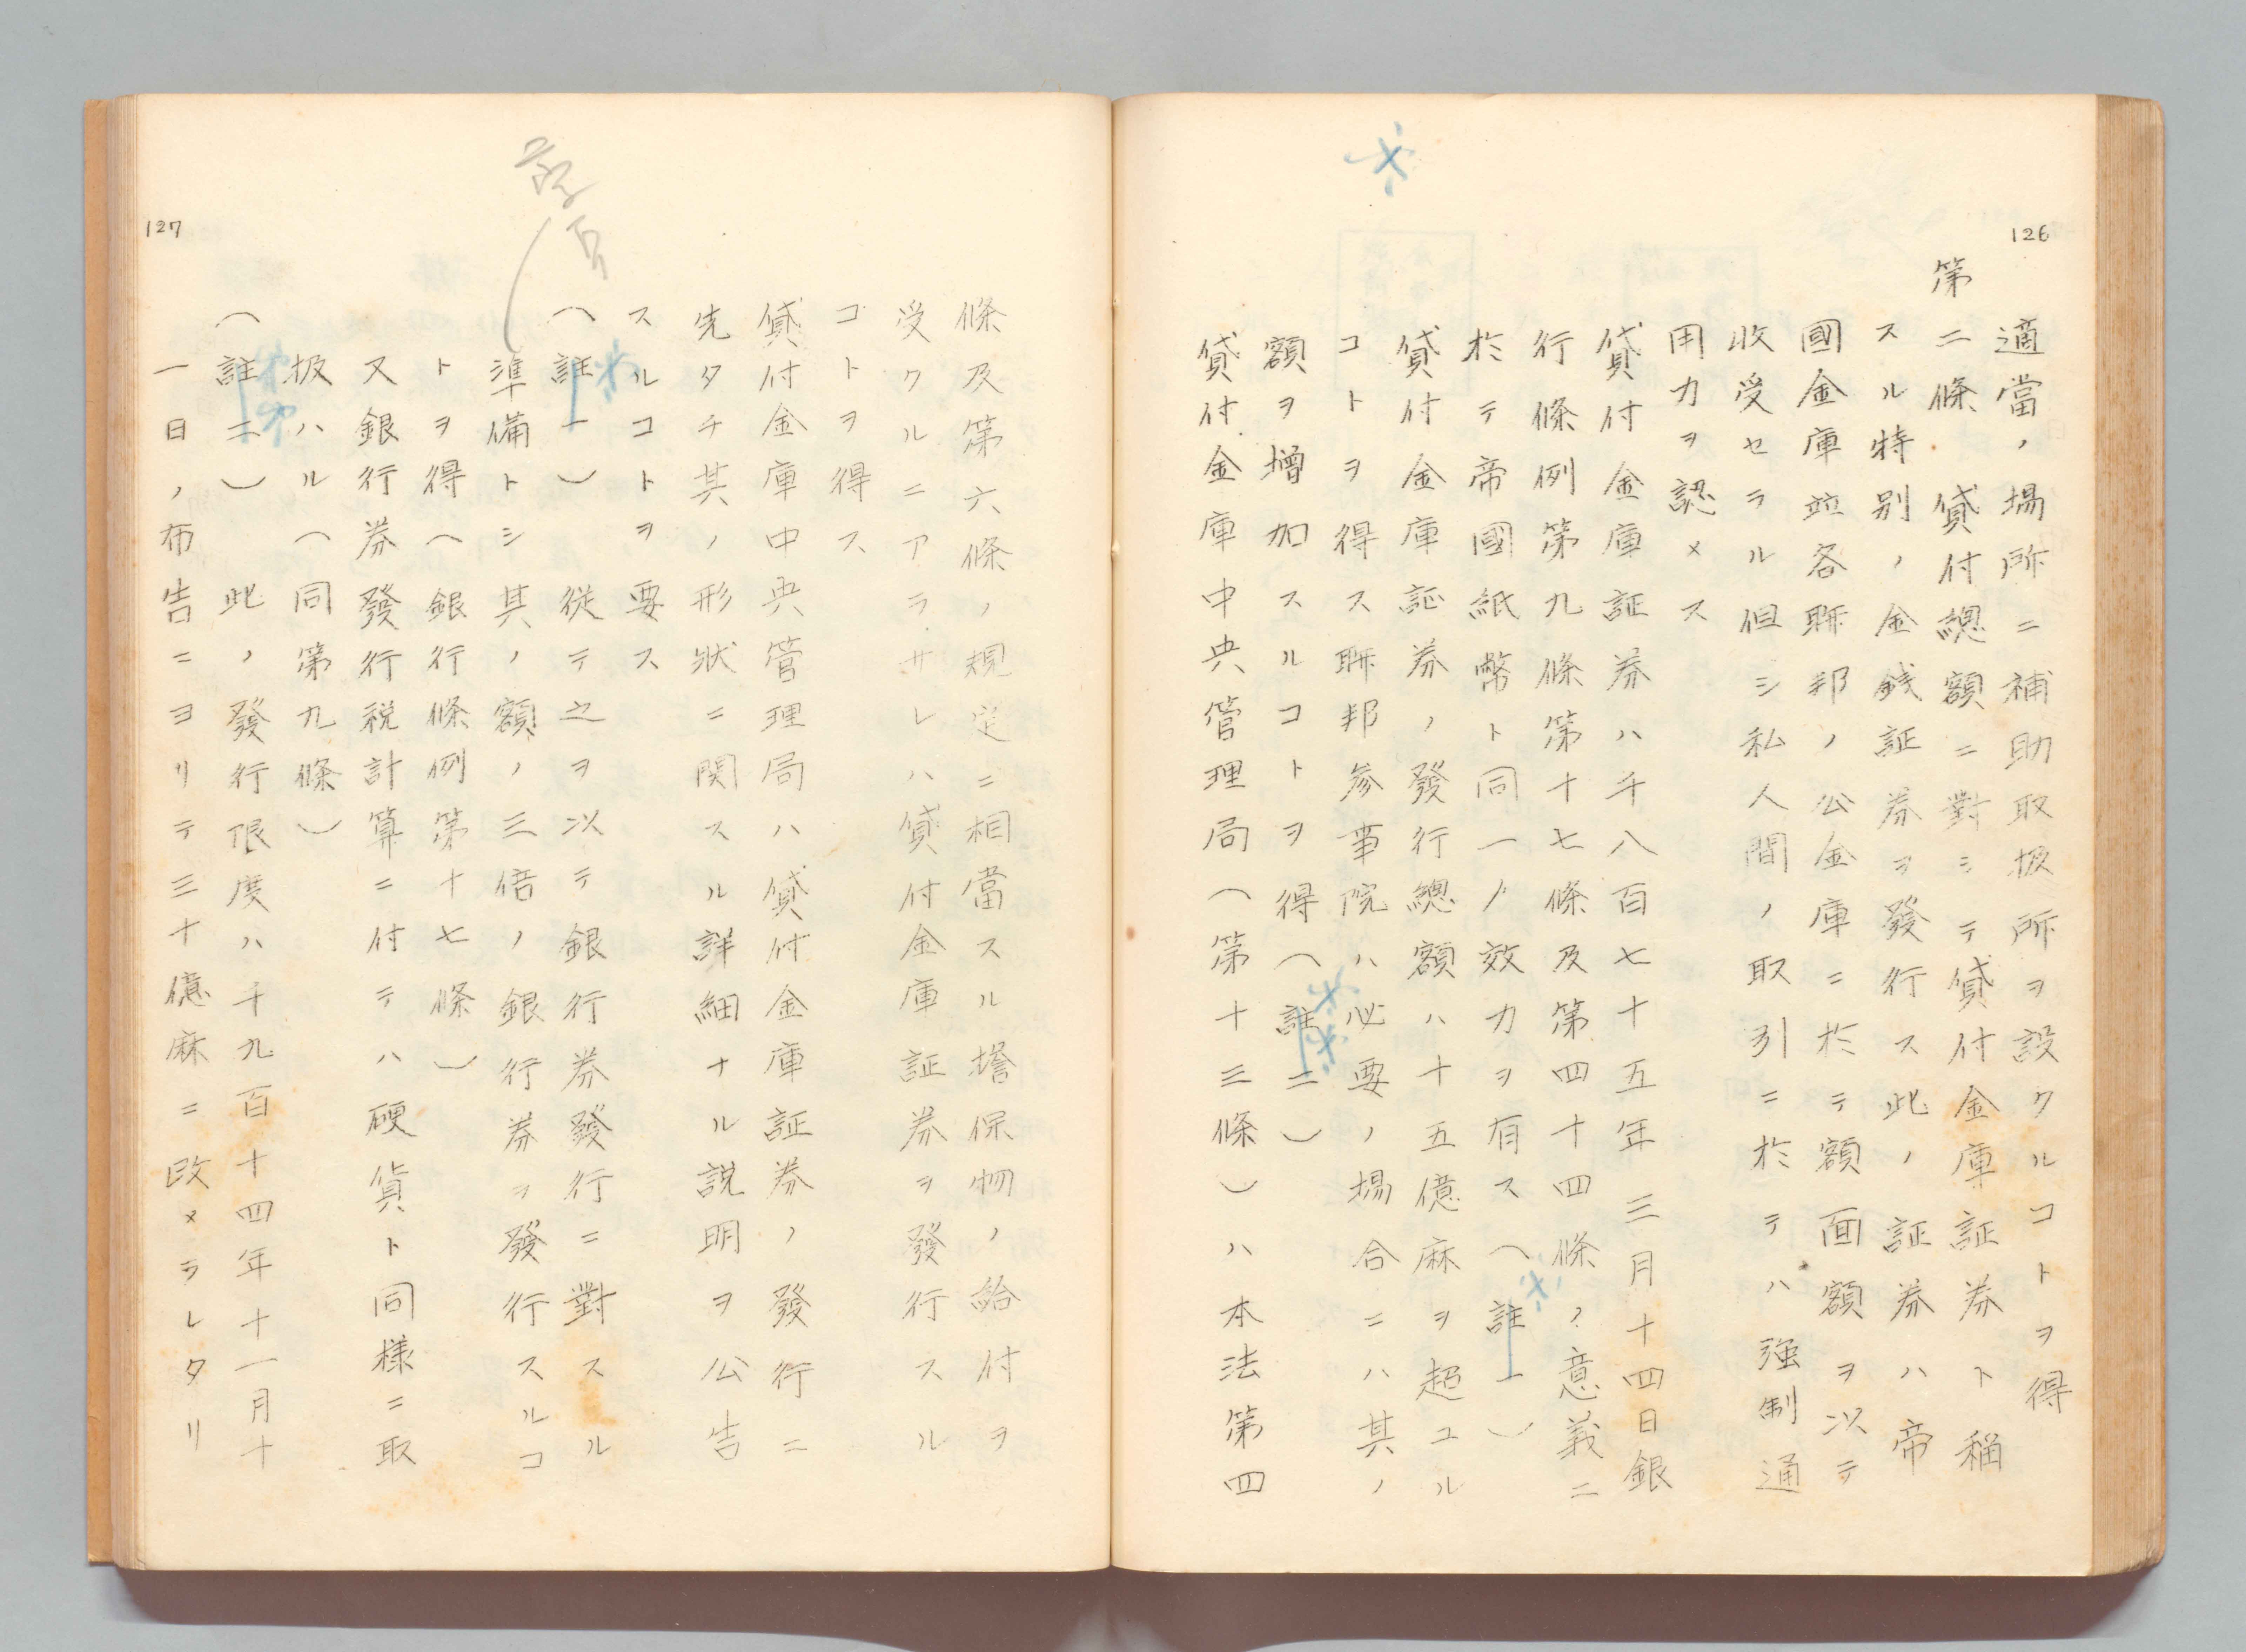 126
適當ノ場所ニ補助取扱所ヲ設クルコトヲ得
第二條　貸付總額ニ對シテ貸付金庫証券ト稱
スル特別ノ金錢証券ヲ發行ス此ノ証券ハ帝
國金庫竝各聯邦ノ公金庫ニ於テ額面額ヲ以テ
收受セラル但シ私人間ノ取引ニ於テハ強制通
用力ヲ認メス
貸付金庫証券ハ千八百七十五年三月十四日銀
行條例第九條第十七條及第四十四條ノ意義ニ
於テ帝國紙幣ト同一ノ效力ヲ有ス（註一）
貸付金庫証券ノ發行總額ハ十五億麻ヲ超ユル
コトヲ得ス聯邦參事院ハ必要ノ場合ニハ其ノ
額ヲ増加スルコトヲ得（註二）
貸付金庫中央管理局（第十三條）ハ本法第四
127
條及第六條ノ規定ニ相當スル擔保物ノ給付ヲ
受クルニアラサレハ貸付金庫証券ヲ發行スル
コトヲ得ス
貸付金庫中央管理局ハ貸付金庫証券ノ發行ニ
先タチ其ノ形狀ニ関スル詳細ナル説明ヲ公告
スルコトヲ要ス
（註一）　從テ之ヲ以テ銀行券發行ニ對スル
準備トシ其ノ額ノ三倍ノ銀行券ヲ發行スルコ
トヲ得（銀行條例第十七條）
又銀行券發行税計算ニ付テハ硬貨ト同様ニ取
扱ハル（同第九條）
（註二）　此ノ發行限度ハ千九百十四年十一月十
一日ノ布告ニヨリテ三十億麻ニ改メラレタリ